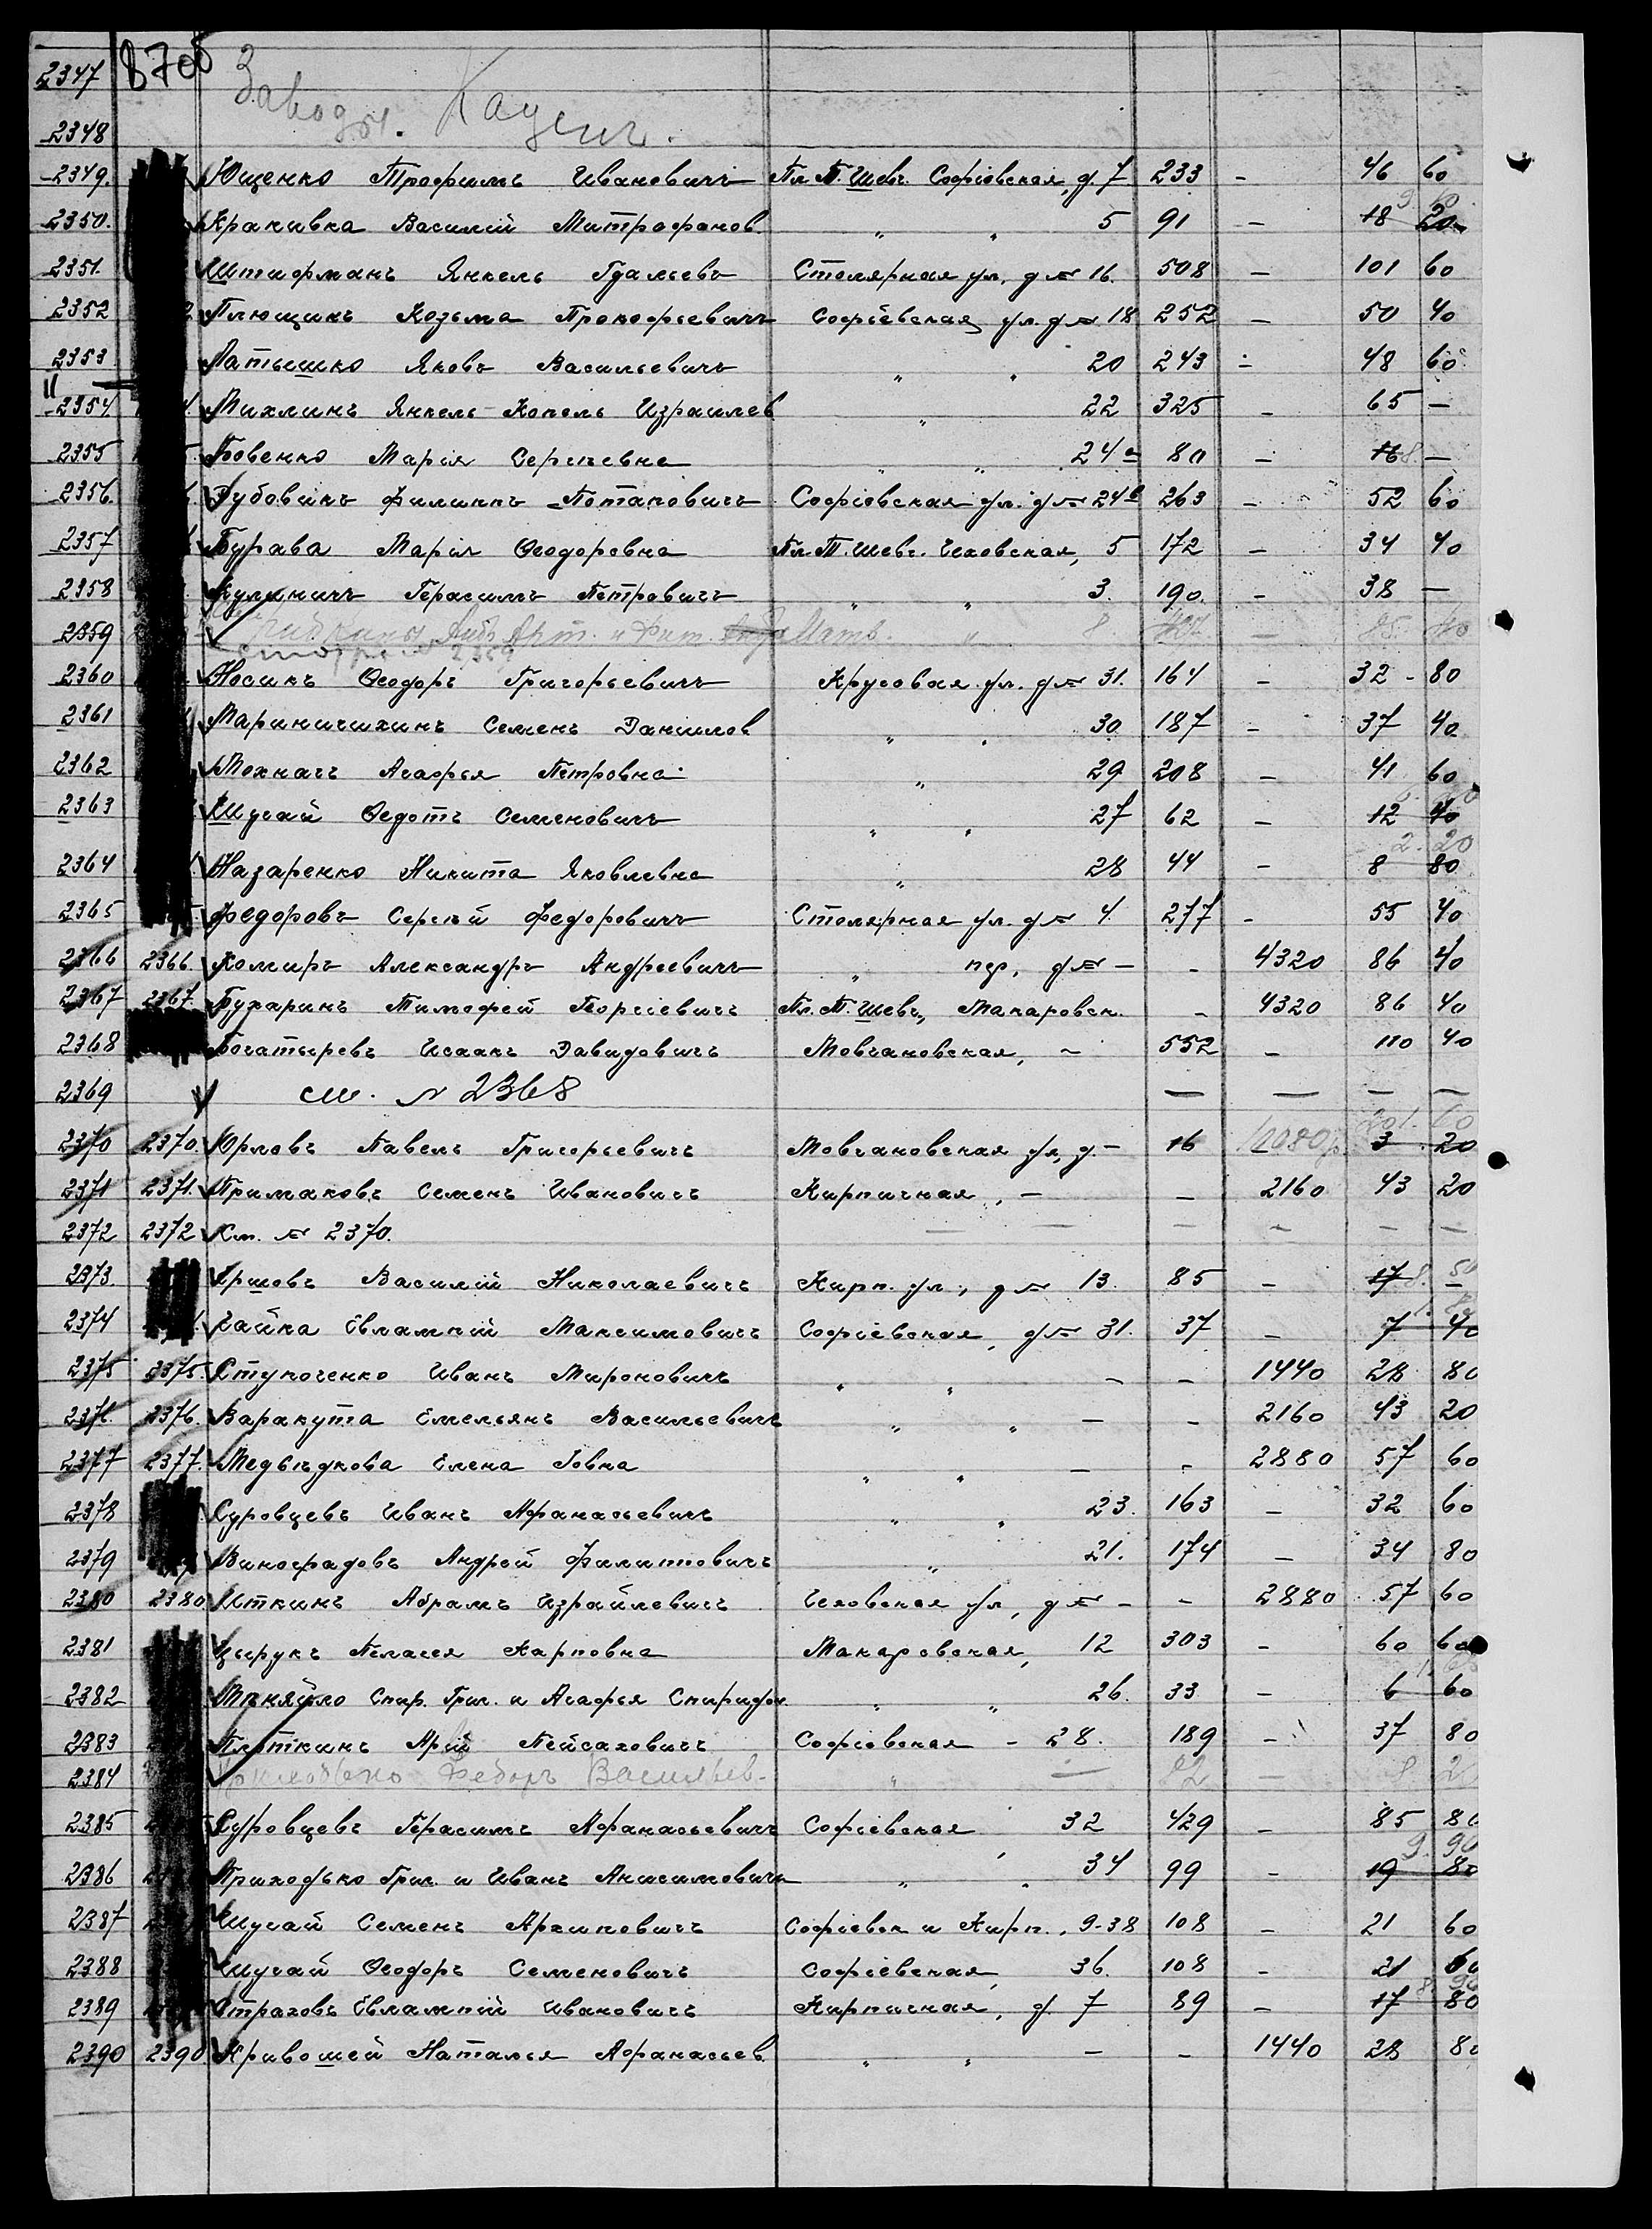 2347 8705 Завод
2348 бл. Кацена.
2349. Ющенко Трофимъ Ивановичъ Пл. П. Шевч. Софіовская, д. 7 233 - 46 60
2350. Кракивка Василій Митрофанов. " " 5 91 - 18 20
2351. Штиорманъ Янкель Гдальевъ Столярная ул. д № 16. 508 - 101 60
2352 Плющикъ Козьма Прокофьевичъ Софіевская ул. д № 18 252 - 50 40
2353 Латышко Яковъ Васильевичъ " " 20 243 - 48 60
2354 Михлинъ Янкель-Копель Израилев " 22 325 - 65 -
2355 Бовенко Марія Сергѣевна " " 24а 80 - 16 8. -
2356. Дубовикъ Филиппъ Потаповичъ Софіовская ул. д № 24б 263 - 52 60
2357 Бурава Марія Ѳеодоровна Пл. П. Шевч. Чеховская, 5 172 - 34 40
2358 Кулиничъ Герасимъ Петровичъ " " 3. 190. - 38 -
2359 Арт. и Фил. Матв. " 8 -
2360 Носикъ Ѳеодоръ Григорьевичъ Крусовая ул. д № 31. 164 - 32 - 80
2361 Мариничихинъ Семенъ Даниилов " " 30 187 - 37 40
2362 Мохначъ Агафья Петровна " 29 208 - 41 60
2363 Шугай Ѳедотъ Семеновичъ " " 27 62 - 12 40
2. 20
2364 Назаренко Никита Яковлевна " 28 44 - 8 80
2365 Федоровъ Сергѣй Федоровичъ Столярная ул. д № 4. 277 - 55 40
2366 2366. Комиръ Александръ Андреевичъ " пер. д № - - 4320 86 40
2367 2367. Бухаринъ Тимофей Георгіевичъ Пл. П. Шевч., Макаровск. - 4320 86 40
2368 Богатыревъ Исаакъ Давидовичъ Мовчановская, - 552 - 110 40
2369 см. № 2368 — — — —
2370 2370. Юрловъ Павелъ Григорьевичъ Мовчановская ул, д. - 16 10080 р. 3 20
2371 2371. Примаковъ Семенъ Ивановичъ Кирпичная, - - 2160 43 20
2372 2372 См. № 2370. — — - - - -
2373. Ершовъ Василій Николаевичъ Кирп. ул., д № 13. 85 - 17 8. 50
2374 Чайка Евлампій Максимовичъ Софіевская, д № 31. 37 - 7 40
2375 2375. Ступоченко Иванъ Мироновичъ " " - - 1440 28 80
2376. 2376. Варакута Емельянъ Васильевичъ " " - - 2160 43 20
2377 2377. Медвѣдкова Елена Іовна " " - - 2880 57 60
2378 Суровцевъ Иванъ Афанасьевичъ " " 23. 163 - 32 60
2379 Виноградовъ Андрей Филипповичъ " 21. 174 - 34 80
2380 2380 Иткинъ Абрамъ Израйлевичъ Чеховская ул, д № - - 2880 57 60
2381 Цырукъ Пелагея Карповна Макаровская, 12 303 - 60 60
2382 Михняйло Спир. Григ. и Агафья Спиридон. " " 26. 33 - 6 60
2383 Пляткинъ Арій Пейсаховичъ Софіовская - 28. 189 - 37 80
2384 Федоръ Васильев. " — 42 — 8. 2
2385 Суровцевъ Герасимъ Афанасьевичъ Софіевская 32 429 - 85 80
9. 90
2386 Приходько Григ. и Иванъ Анисимовичи " " 34 99 - 19 80
2387 Шугай Семенъ Архиповичъ Софіевск и Кирп., 9-38 108 - 21 60
2388 Шугай Ѳеодоръ Семеновичъ Софіевская, 36. 108 - 21 60
2389 Страховъ Евлампій Ивановичъ Кирпичная, д. 7 89 - 17 80
2390 2390 Кривошей Наталья Афанасьев. " " - - 1440 28 80